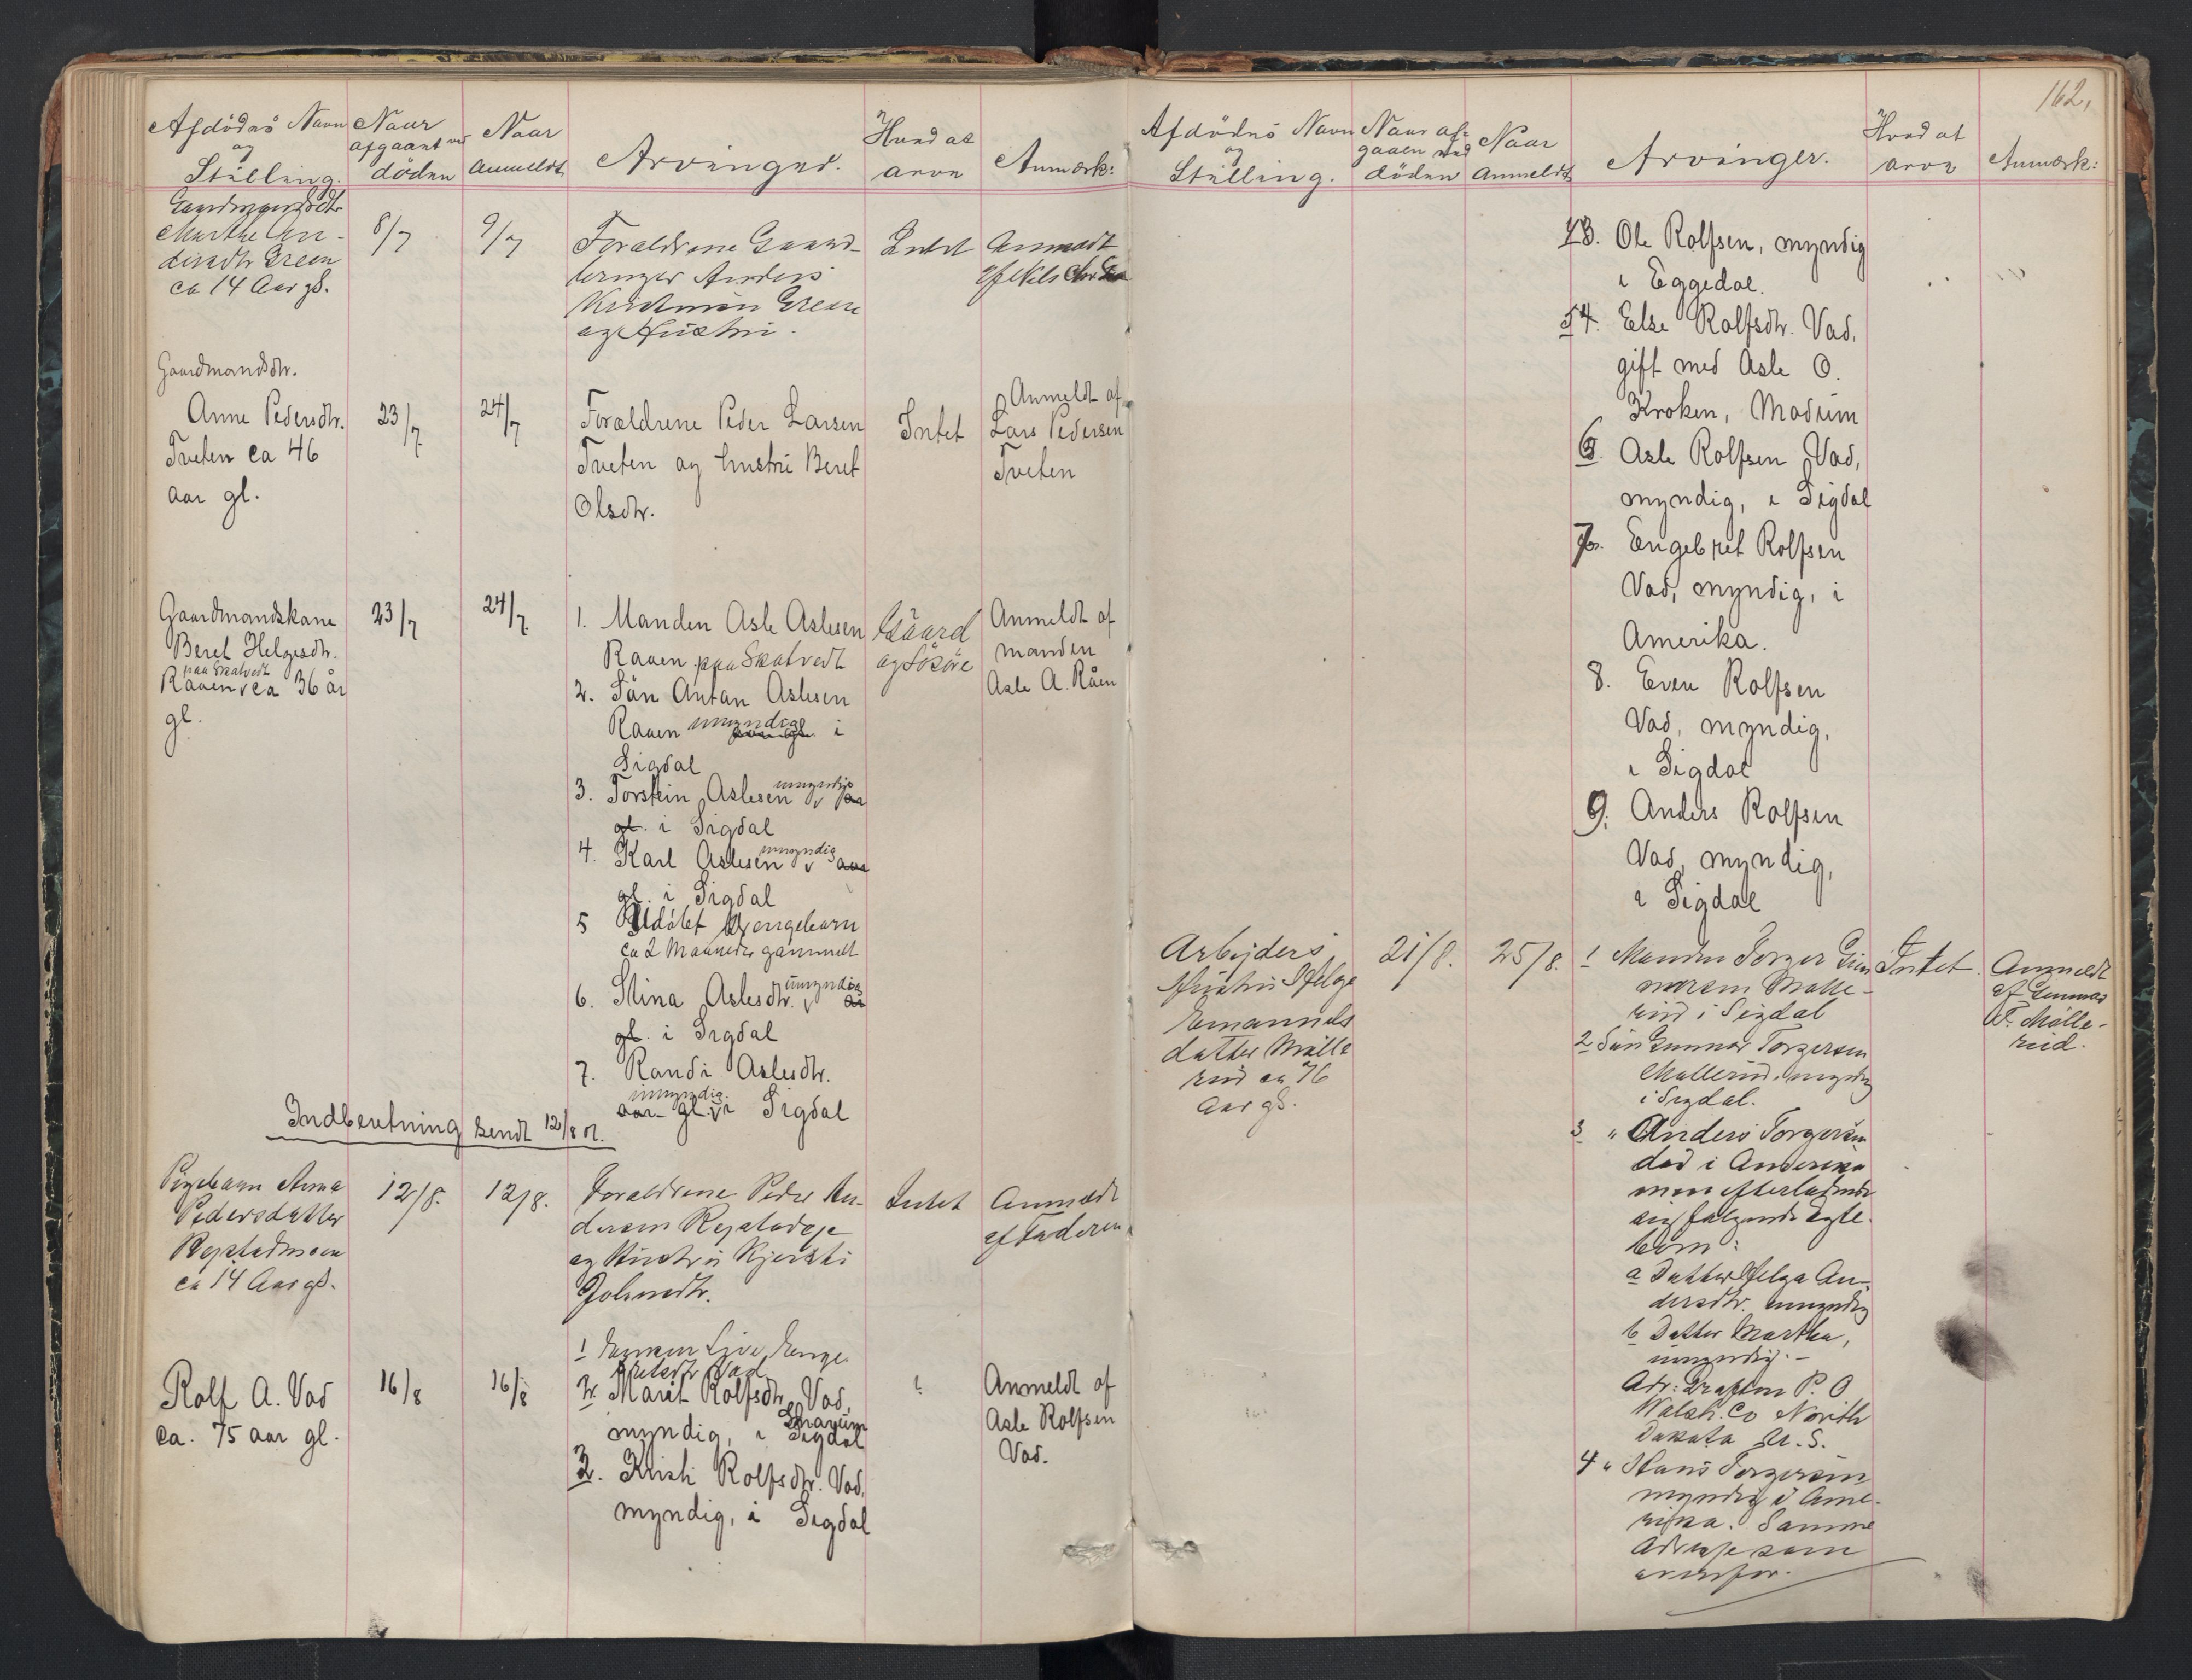 162,
Afdödes Navn
og
Stilling.
Naar
afgaaet ved
döden
Naar
Anmeldt
Arvinger.
Hvad at
arve
Anmærk:
Marthe An-
dersdtr Green
ca 14 Aar gl.
8/7
9/7
Forældrene Gaard-
bruger Anders
Green
og Hustru.
Intet
Anmeldt
af Nels
Gaardmandsdtr.
Anne Pedersdtr.
Tveten ca 46
aar gl.
23/7
24/7
Forældrene Peder Larsen
Tveten og hustru Beret
Olsdtr.
Intet
Anmeldt af
Lars Pedersen
Tveten
Gaardmandskone
Beret Helgesdtr.
paa Skatvedt
Raaen v ca 36 år
gl.
23/7
24/7
1. Manden Asle Aslesen
Raaen paa Skatvedt
2. Sön Anton Aslesen
Raaen umyndig i
Sigdal
3. Torstein Aslesen v umyndig aar
gl. i Sigdal
4. Karl Aslesen v umyndig aar
gl. i Sigdal
5 Udöbt Drengebarn
ca 2 Maaneder gammelt
6. Stina Aslesdtr. v umyndig aar
gl. i Sigdal
7. Randi Aslesdtr.
umyndig.
aar gl. v i Sigdal
Gaard
og Lösöre
Anmeldt af
manden
Asle A. Råen
Indberetning sendt 12/8 01.
Pigebarn Anna
Pedersdatter
ca 14 Aar gl.
12/8.
12/8.
Forældrene Peder An-
dersen
og Hustru Kjersti
Johnsdtr.
Intet
Anmeldt
af Faderen
Rolf A. Vad
ca. 75 aar gl.
16/8
16/8
1 Enken Live Enge-
bretsdtr Vad
2. Marit Rolfsdtr. Vad,
Snarum
myndig, i Sigdal
3. Kristi Rolfsdtr. Vad,
myndig, i Sigdal
?
Anmeldt af
Asle Rolfsen
Vad.
Afdödes Navn
og
Stilling.
Naar af-
gaaen ved
döden
Naar
Anmeldt
Arvinger.
Hvad at
arve
Anmærk:
3. Ole Rolfsen, myndig
i Eggedal.
4. Else Rolfsdtr. Vad,
gift med Asle O.
Kroken, Modum
6. Asle Rolfsen Vad,
myndig, i Sigdal
7. Engebret Rolfsen
Vad, myndig, i
Amerika.
8. Even Rolfsen
Vad, myndig,
i Sigdal
9. Anders Rolfsen
Vad, myndig,
i Sigdal
Arbejders
Hustru Helge
Emanuels
datter Mölle
rud ca 76
Aar gl.
21/8.
25/8.
1 Manden Torger Gun
narsen Mölle-
rud i Sigdal
2 Sön Gunnar Torgersen
Möllerud, myndig
i Sigdal.
3 " Anders Torgersen
död i Amerika
men efterladende
sig fölgende Ægte-
börn:
a Datter Helga An-
dersdtr. umyndig
b Datter Martha,
umyndig. -
Adr: Grafton P. O
Walsh. Co North
Dakota U. S.
4 " Hans Torgersen
myndig i Ame-
rika. Samme
Adresse som
ovenfor.
Intet
Anmeldt
af Gunnar
T. Mölle-
rud.